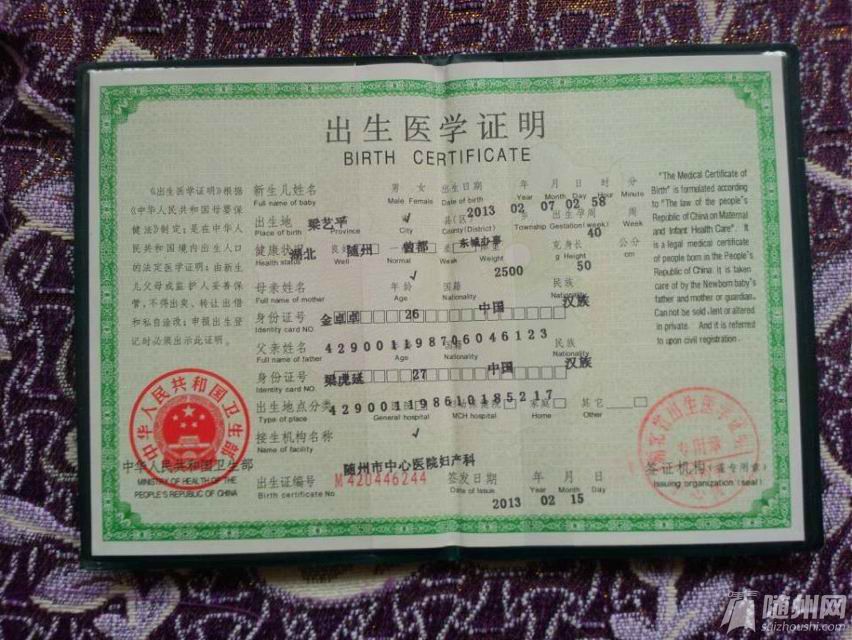 出生医学证明
BIRTH CERTIFICATE
《出生医学证明》根据
《中华人民共和国母婴保
健法》制定;是在中华人
民共和国境内出生人口
的法定医学证明;由新生
儿父母或监护人妥善保
管,不得出卖、转让出借
和私自涂改;申报出生登
记时必须出示此证明。
中华人民共和国卫生部
中华人民共和国卫生部
MINISTRY OF HEALTH OF THE
PEOPLE'S REPUBLIC OF CHINA
新生儿姓名 男 女 出生日期 年 月 日 时 分
Full name of baby Male Female Date of birth Year Month Day Hour Minute
梁艺平 ✓ 2013 02 07 02 58
出生地 省 市 县(区) 乡 出生孕周 周
Province City County(District) Township Gestation (week) Week
湖北 随州 曾都 东城办事 40
健康状况 良好 一般 差 体重 克 身长 公分
Health status Well Normal Weak Weight g Height cm
✓ 2500 50
母亲姓名 年龄 国籍 民族
Full name of mother Age Nationality Nationality
金卓卓 26 中国 汉族
身份证号
Identity card NO.
429001198706046123
父亲姓名 国籍 民族
Full name of father Age Nationality Nationality
梁虎延 27 中国 汉族
身份证号
Identity card NO.
429001198610185217
出生地点分类 医院 妇幼保健院 家庭 其它
Type of place General hospital MCH hospital Home Other
✓
接生机构名称
Name of facility
随州市中心医院妇产科
出生证编号 M420446244 签发日期 年 月 日
Birth certificate no Date of Issue Year Month Day
2013 02 15
"The Medical Certificate of
Birth" is formulated according
to "The law of the people's
Republic of China on Maternal
and Infant Health Care". It
is a legal medical certificate
of people born in the People's
Republic of China. it is taken
care of by the Newborn baby's
father and mother or guardian.
Can not be sold ,lent or altered
in private. And it is referred
to upon civil registration.
湖北省出生医学证明
专用章
签证机构(盖专用章)
Issuing organization (seal)
随州网
suizhoushi.com